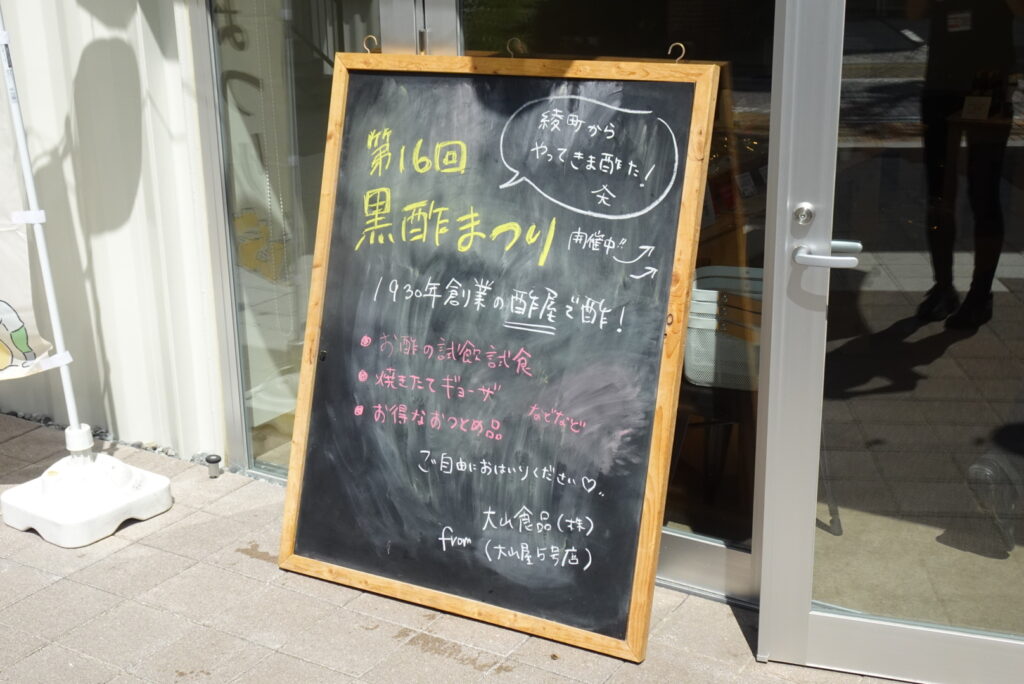 綾町から
やってきま酢た!
第16回
黒酢まつり
開催中!!
1930年創業の酢屋で酢!
お酢の試飲試食
焼きたてギョーザ
お得なおつとめ品
などなど
ご自由におはいりください♡
大山食品(株)
from (大山屋5号店)